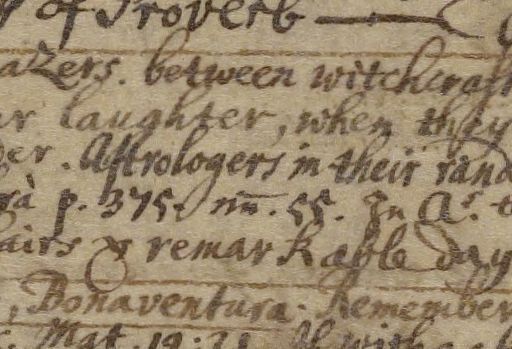 of Proverb
azers. between witchcraft
er laughter, when they
der. Astrologers in their rand
p. 375. nū. 55. In
hairs & remarkable day
, Bonaventura. Remember
Mat. 19: 21. If